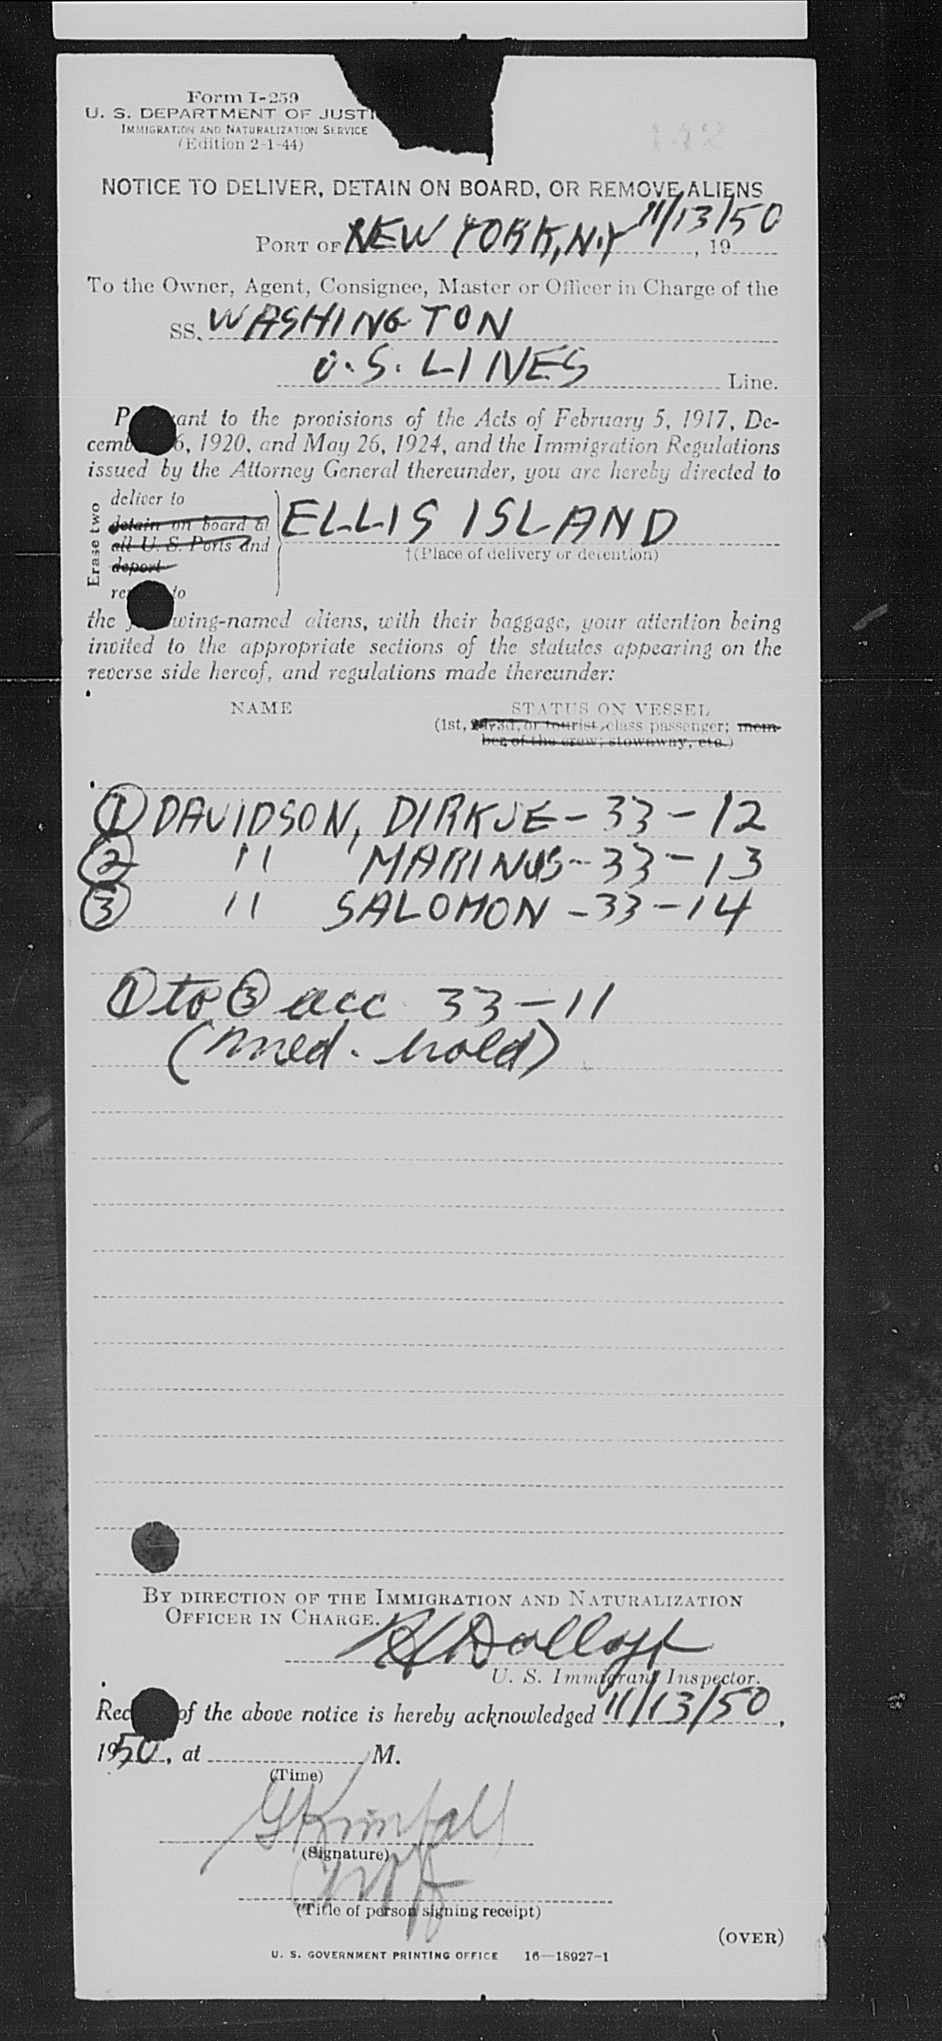 Form I-259
U. S. DEPARTMENT OF JUSTI
IMMIGRATION AND NATURALIZATION SERVICE
(Edition 2-1-44)
NOTICE TO DELIVER, DETAIN ON BOARD, OR REMOVE ALIENS
PORT OF NEW YORK, N.Y 11/13/50, 19
To the Owner, Agent, Consignee, Master or Officer in Charge of the
SS. WASHINGTON
U.S. LINES Line.
P ant to the provisions of the Acts of February 5, 1917, De-
cemb 6, 1920, and May 26, 1924, and the Immigration Regulations
issued by the Attorney General thereunder, you are hereby directed to
Erase two
deliver to
detain on board at
all U. S. Ports and
deport
re to
ELLIS ISLAND
†(Place of delivery or detention)
the wing-named aliens, with their baggage, your attention being
invited to the appropriate sections of the statutes appearing on the
reverse side hereof, and regulations made thereunder:
NAME STATUS ON VESSEL
(1st, 2d, 3d, or tourist class passenger; mem-
ber of the crew; stowaway, etc.)
① DAVIDSON, DIRKJE - 33 - 12
② 11 MARINUS - 33 - 13
③ 11 SALOMON - 33 - 14
① to ③ acc 33 - 11
(med. hold)
BY DIRECTION OF THE IMMIGRATION AND NATURALIZATION
OFFICER IN CHARGE.
U. S. Immigrant Inspector.
Rec of the above notice is hereby acknowledged 11/13/50,
1950, at M.
(Time)
(Signature)
(Title of person signing receipt)
(OVER)
U. S. GOVERNMENT PRINTING OFFICE 16—18927-1